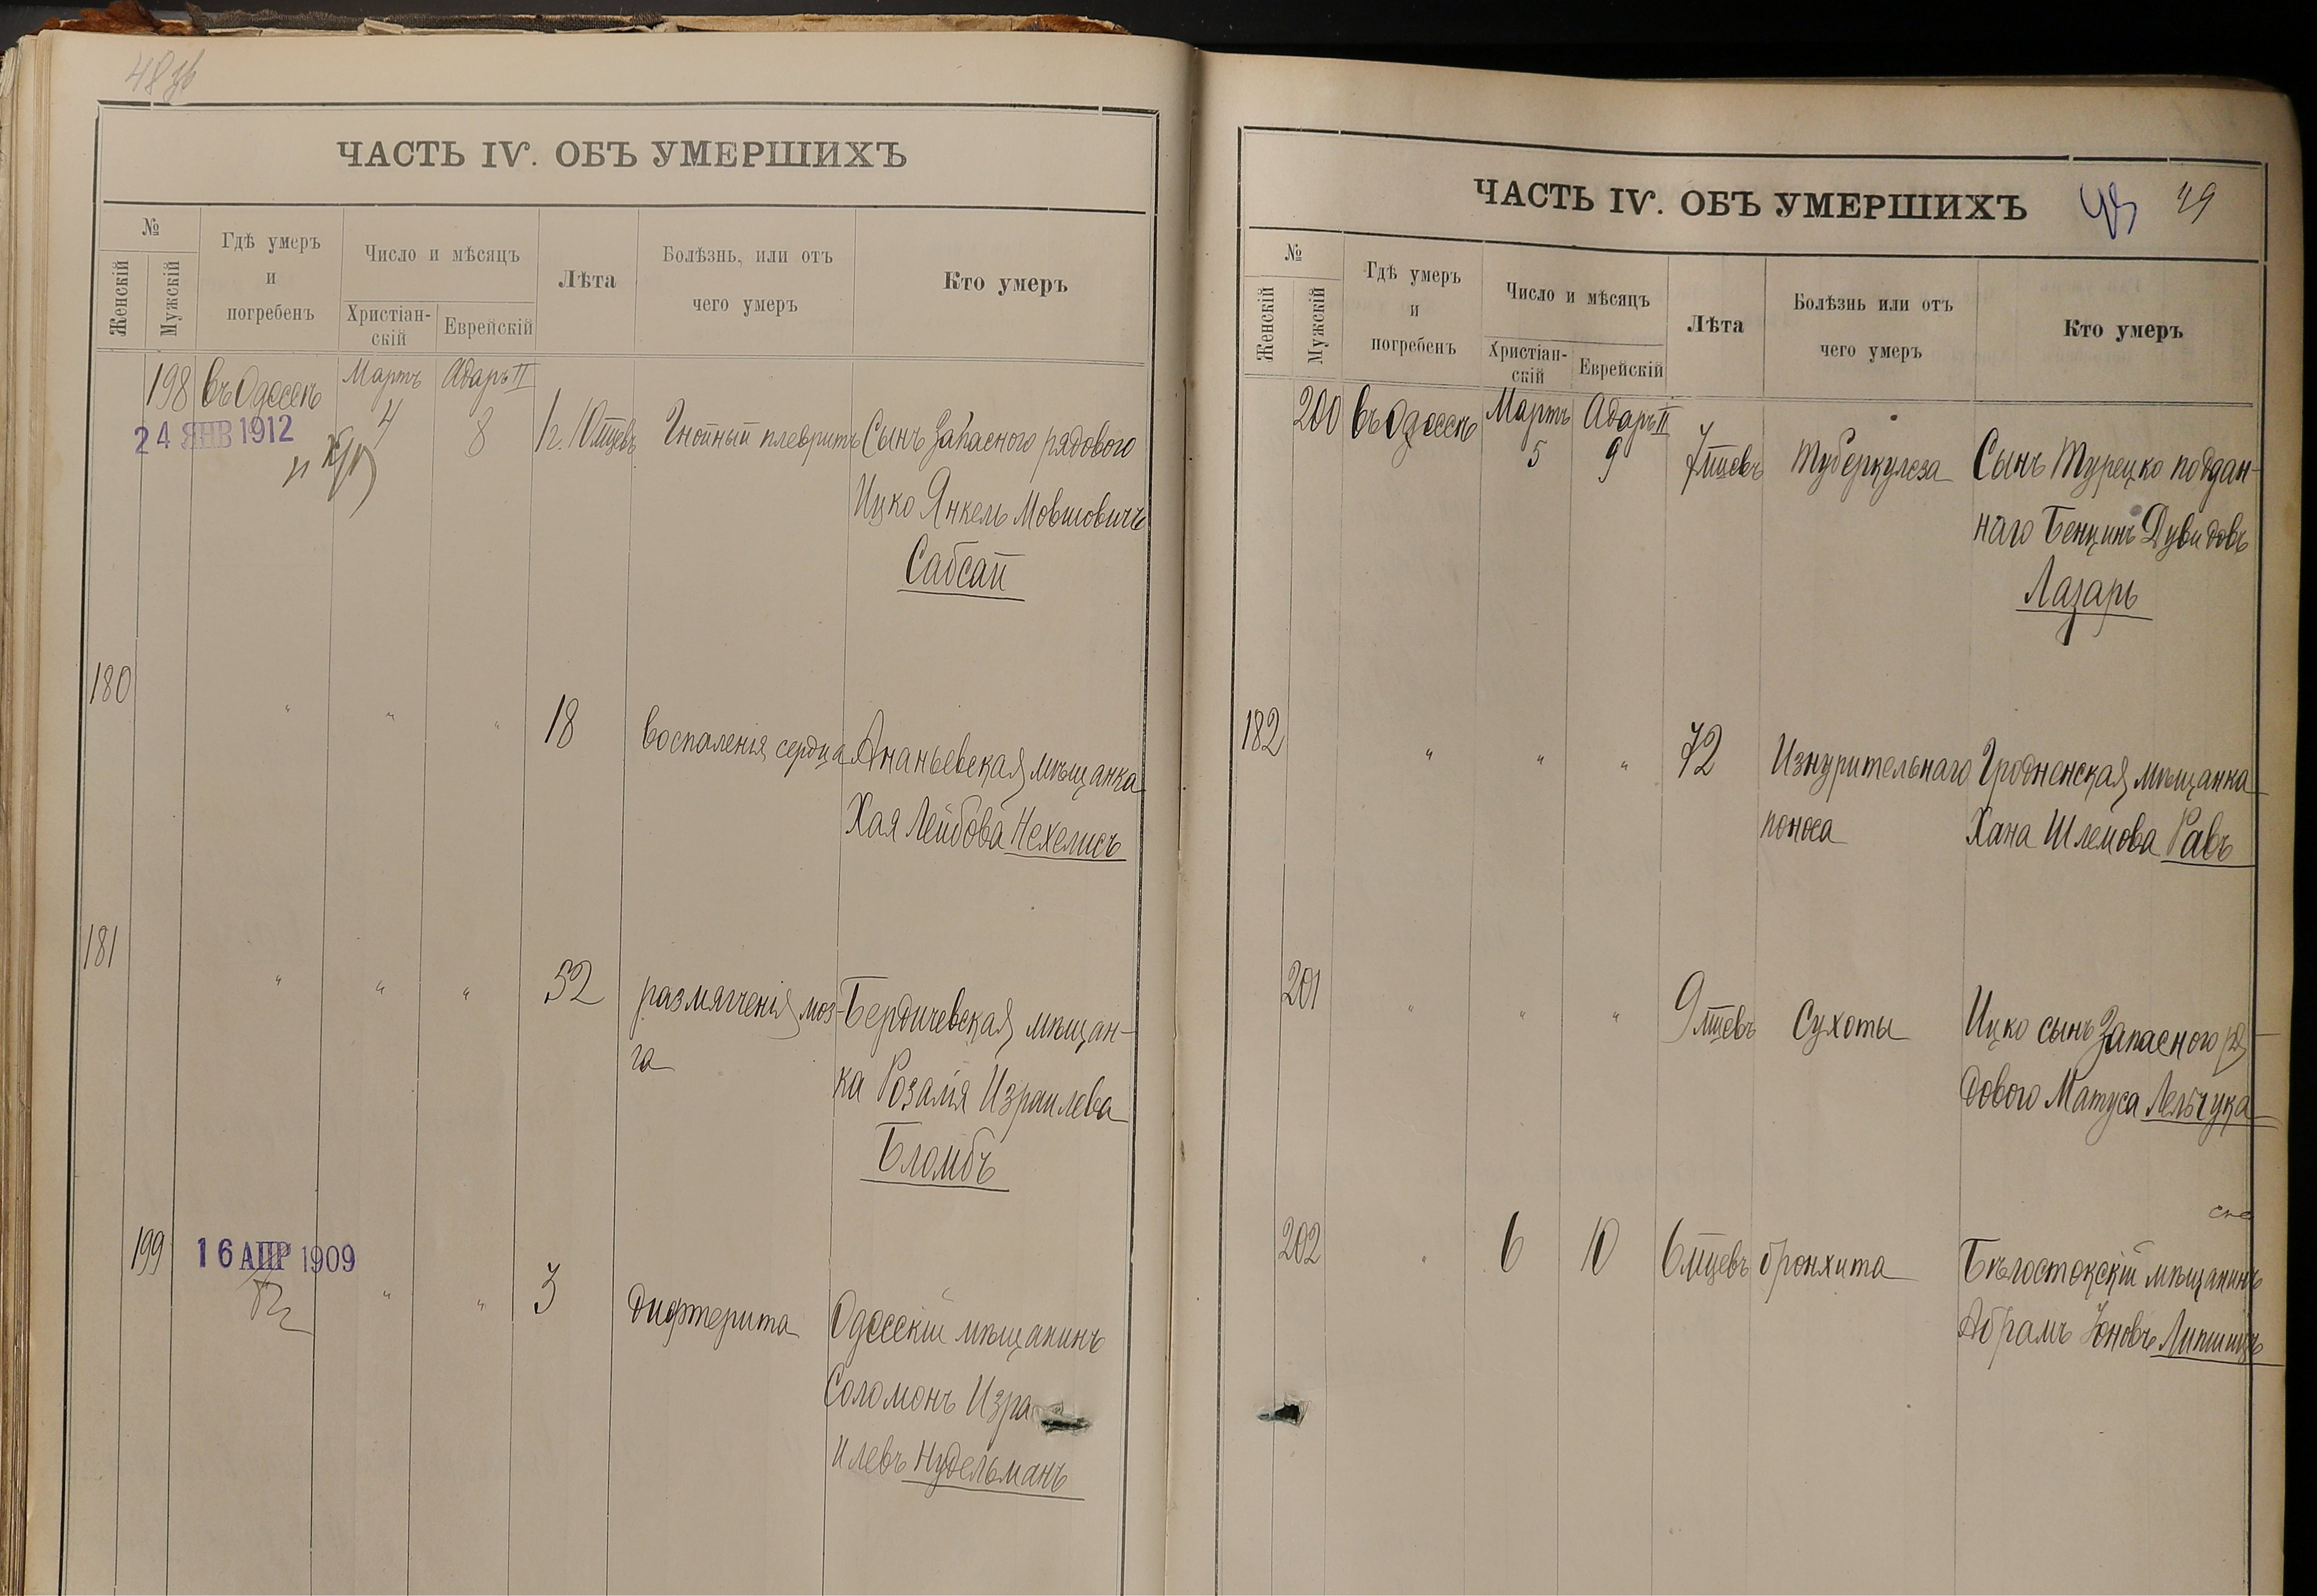 48
ЧАСТЬ IV. ОБЪ УМЕРШИХЪ
№
Женскій
Мужскій
Гдѣ умеръ
и
погребенъ
Число и мѣсяцъ
Христіан-
скій
Еврейскій
Лѣта
Болѣзнь, или отъ
чего умеръ
Кто умеръ
198 въ Одессѣ Мартъ Адаръ II
24 ЯНВ 1912 4 8 1 г. 10 мцевъ Гнойный плевритъ Сынъ Запаснаго рядового
Ицко Янкель Мовшовичъ
Сабсай
180 " " " 18 воспаленія сердца Ананьевская мѣщанка
Хая Лейбова Нехелисъ
181 " " " 52 размягченія моз- Бердичевская мѣщан-
га
ка Розалія Израилева
Бломбъ
199 16 АПР 1909 " " 3 дифтерита Одесскій мѣщанинъ
Соломонъ Изра
илевъ Нудельманъ
ЧАСТЬ IV. ОБЪ УМЕРШИХЪ 49
№
Женскій
Мужскій
Гдѣ умеръ
и
погребенъ
Число и мѣсяцъ
Христіан-
скій
Еврейскій
Лѣта
Болѣзнь или отъ
чего умеръ
Кто умеръ
200 въ Одессѣ Мартъ Адаръ II
5 9 7 мцевъ туберкулеза Сынъ Турецко поддан-
наго Бенцинъ Дувидовъ
Лазарь
182 " " " 72 Изнурительнаго Гродненская мѣщанка
поноса Хана Шлемова Равъ
201 " " " 9 мцевъ Сухоты Ицко сынъ Запасного ря
дового Матуса Лельчука
202 " 6 10 6 мцевъ бронхита Бѣлостокскій мѣщанинъ
Абрамъ Іоновъ Липшицъ